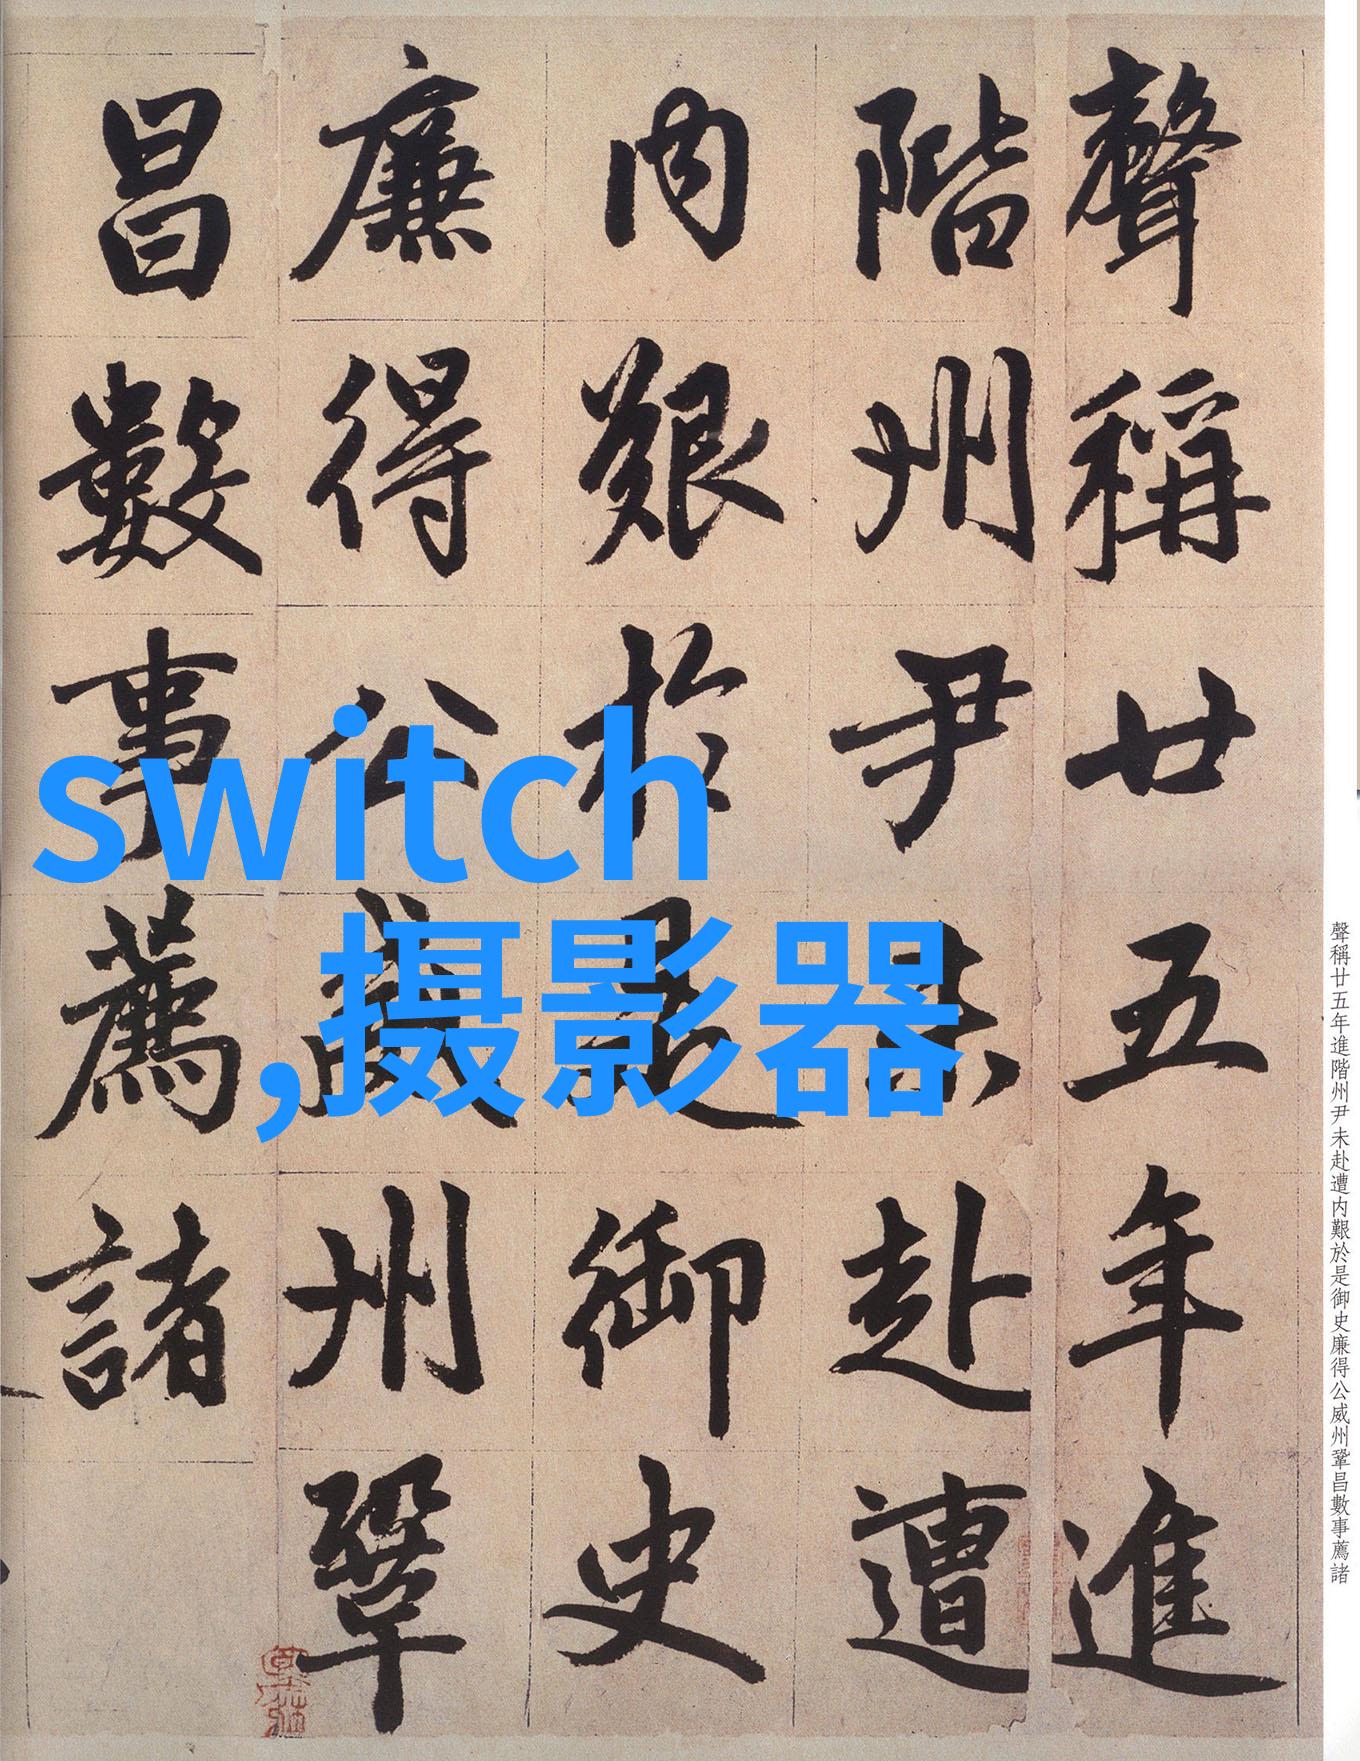 聲稱廿五年進
階州尹未赴遭
内艱於是御史
廉得公威州鞏
昌數事薦諸
switch
,摄影器
聲稱廿五年進階州尹未赴遭内艱於是御史廉得公威州鞏昌數事薦諸